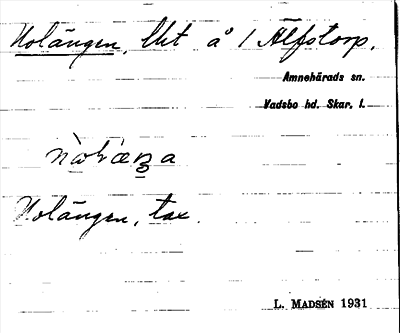 Holängen, lht å 1 Älfstorp,
Amnehärads sn.
Vadsbo hd. Skar. l.
Holängen, tax.
L. MADSÉN 1931